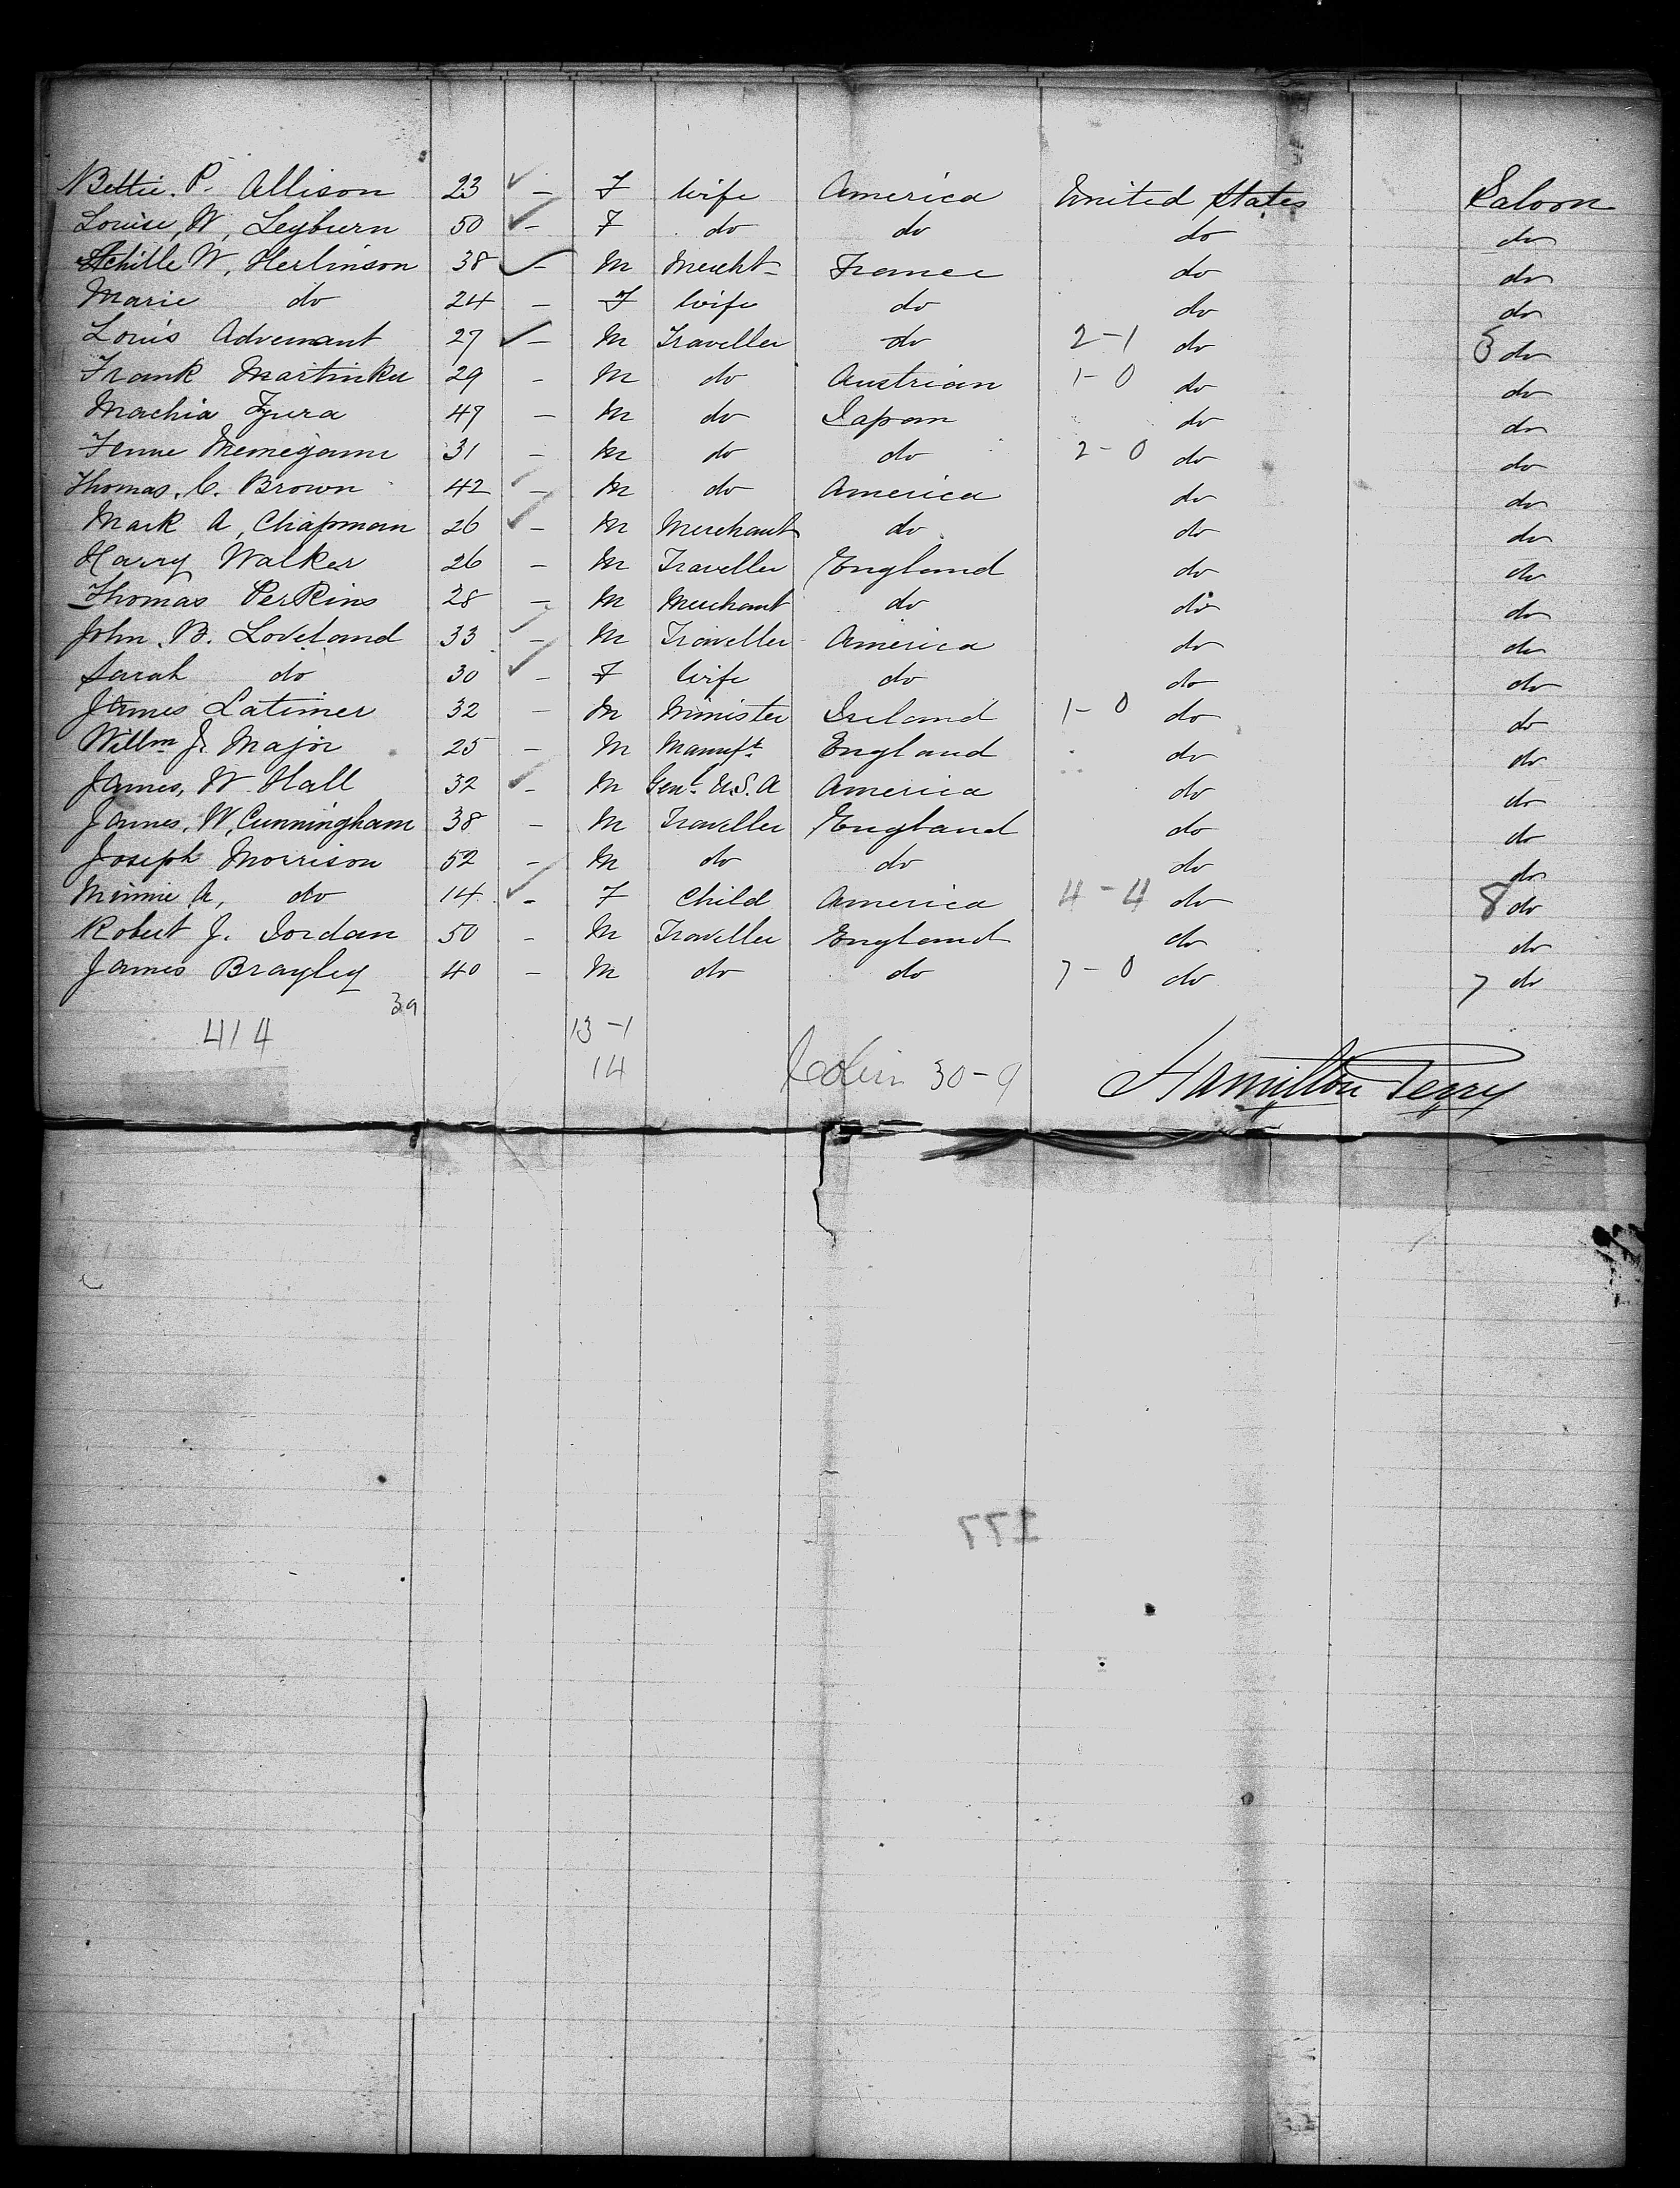 Bettie. P. Allison 23 ✓ - F Wife America United States Saloon
Louise, W, Leyburn 50 ✓ - F do do do do
Achille W, Herlinson 38 ✓ - M Mercht- France do do
Marie do 24 - F Wife do do do
Louis Advenant 27 ✓ - M Traveller do 2-1 do 5 do
Frank Martinka 29 - M do Austrian 1-0 do do
Machia 49 - M do Japan do do
31 - M do do 2-0 do do
Thomas. C. Brown 42 ✓ - M do America do do
Mark A, Chapman 26 ✓ - M Merchant do do do
Harry Walker 26 - M Traveller England do do
Thomas Perkins 28 - M Merchant do do do
John. B. Loveland 33 ✓ - M Traveller America do do
Sarah do 30 ✓ - F Wife do do do
James Latimer 32 - M Minister Ireland 1-0 do do
Willm J. Major 25 - M Manuft England do do
James, W. Hall 32 ✓ - M Genl. U.S.A America do do
James, W, Cunningham 38 - M Traveller England do do
Joseph Morrison 52 - M do do do do
Minnie A, do 14 ✓ - F Child America 4-4 do 8 do
Robert J. Jordan 50 - M Traveller England do do
James Brayley 40 - M do do 7-0 do 7 do
39
414 13-1
14 30-9 Hamilton Perry
177